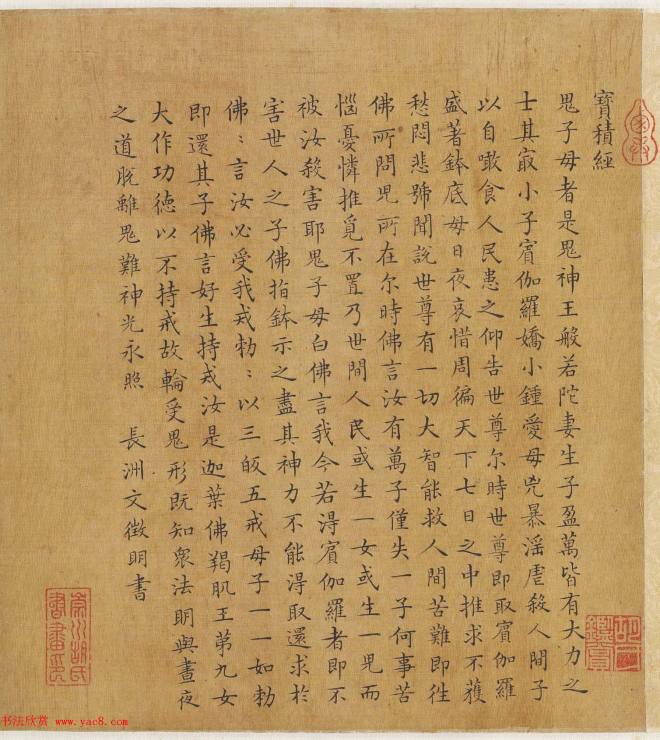 寶積經
鬼子母者是鬼神王般若陀妻生子盈萬皆有大力之
士其冣小子賓伽羅嬌小鍾愛母兇暴淫虐殺人間子
以自噉食人民患之仰告世尊尔時世尊即取賓伽羅
盛著鉢底母日夜哀惜周徧天下七日之中推求不獲
愁悶悲號聞說世尊有一切大智能救人間苦難即往
佛所問兒所在尔時佛言汝有萬子僅失一子何事苦
惱憂憐推覓不置乃世間人民或生一女或生一兒而
被汝殺害耶鬼子母白佛言我今若得賓伽羅者即不
害世人之子佛指鉢示之盡其神力不能得取還求於
佛：言汝必受我戒勅：以三皈五戒母子一一如勅
即還其子佛言好生持戒汝是迦葉佛羯肌王第九女
大作功德以不持戒故輪受鬼形既知衆法朙與晝夜
之道脫離鬼難神光永照　長洲文徵明書
書法欣赏 www.yac8.com